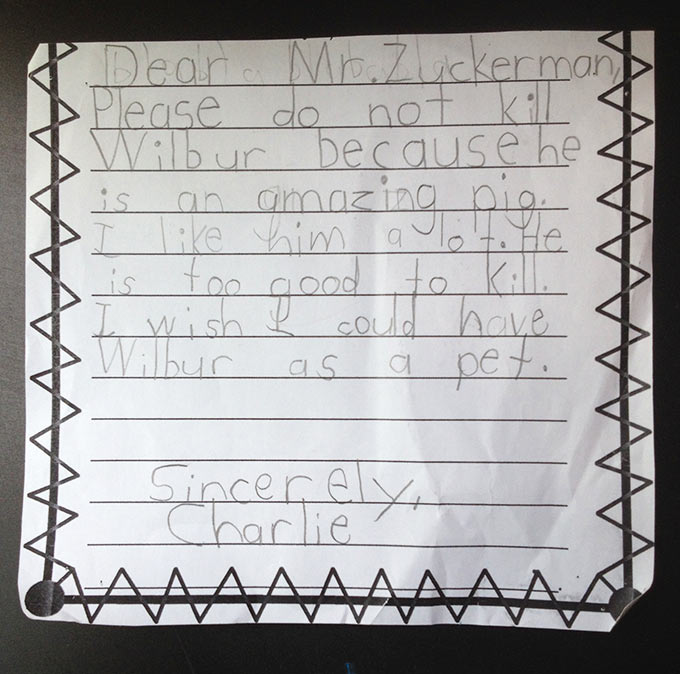 Dear Mr. Zuckerman,
Please do not kill
Wilbur because he
is an amazing pig.
I like him a lot. He
is too good to kill.
I wish I could have
Wilbur as a pet.
Sincerely,
Charlie